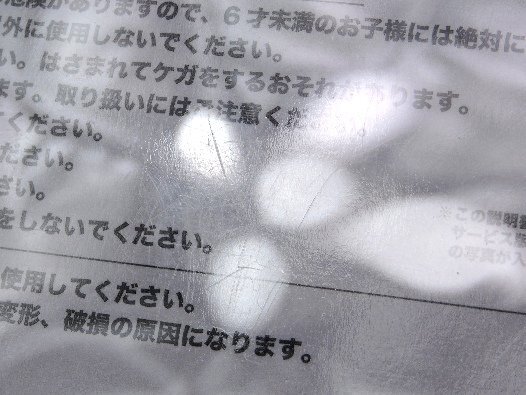 危険がありますので、6才未満のお子様には絶対に
外に使用しないでください。
い。はさまれてケガをするおそれがあります。
ます。取り扱いにはご注意ください。
ください。
ださい。
さい。
をしないでください。
使用してください。
変形、破損の原因になります。
※この説明書
サービス
の写真が入